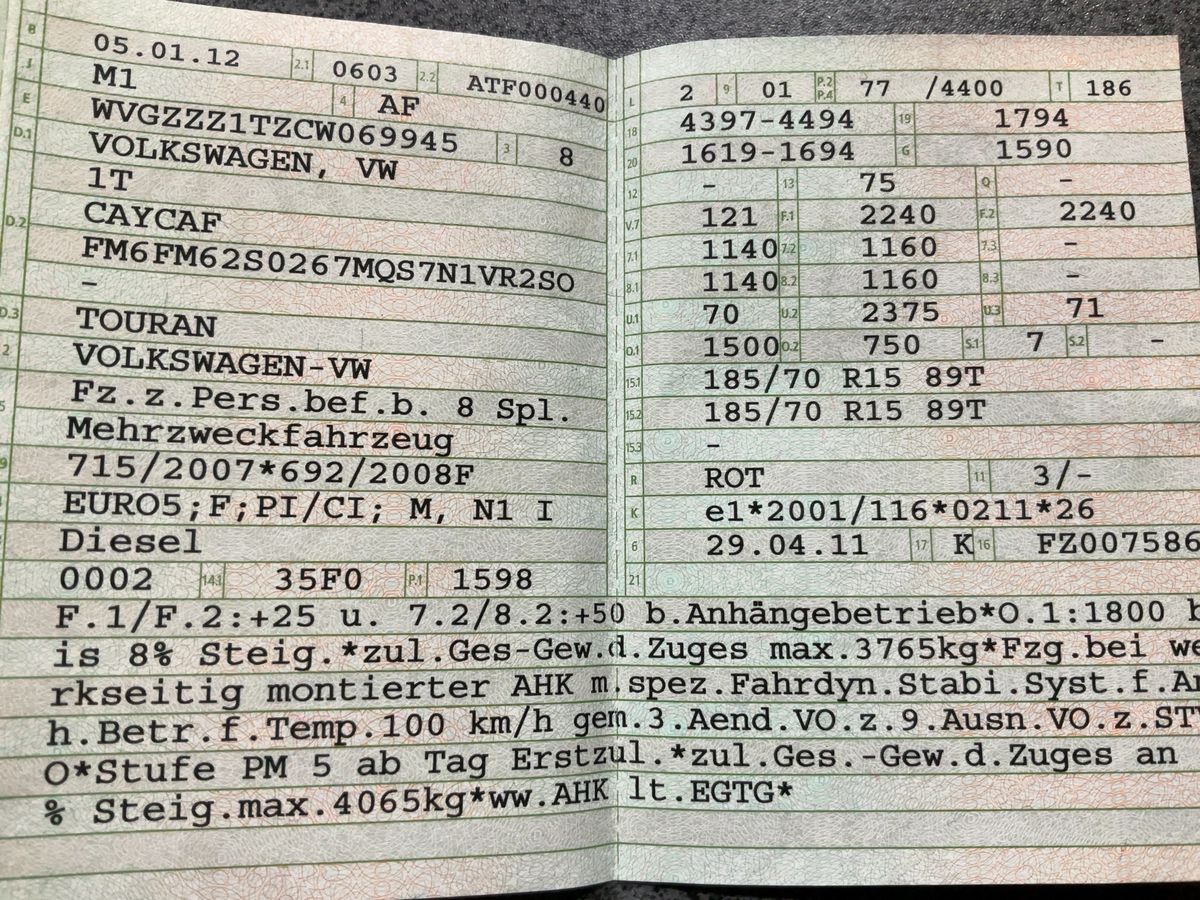 B 05.01.12 2.1 0603 2.2 ATF000440
J M1 4 AF
E WVGZZZ1TZCW069945 3 8
D.1 VOLKSWAGEN, VW
1T
D.2 CAYCAF
FM6FM62S0267MQS7N1VR2SO
-
D.3 TOURAN
2 VOLKSWAGEN-VW
5 Fz.z.Pers.bef.b. 8 Spl.
Mehrzweckfahrzeug
9 715/2007*692/2008F
EURO5;F;PI/CI; M, N1 I
Diesel
0002 14.1 35F0 P.1 1598
L 2 9 01 P.2 P.4 77 /4400 T 186
18 4397-4494 19 1794
20 1619-1694 G 1590
12 - 13 75 Q -
V.7 121 F.1 2240 F.2 2240
7.1 1140 7.2 1160 7.3 -
8.1 1140 8.2 1160 8.3 -
U.1 70 U.2 2375 U.3 71
O.1 1500 O.2 750 S.1 7 S.2 -
15.1 185/70 R15 89T
15.2 185/70 R15 89T
15.3 -
R ROT 11 3/-
K e1*2001/116*0211*26
6 29.04.11 17 K 16 FZ007586
21
F.1/F.2:+25 u. 7.2/8.2:+50 b.Anhängebetrieb*O.1:1800
is 8% Steig.*zul.Ges-Gew.d.Zuges max.3765kg*Fzg.bei we
rkseitig montierter AHK m.spez.Fahrdyn.Stabi.Syst.f.An
h.Betr.f.Temp.100 km/h gem.3.Aend.VO.z.9.Ausn.VO.z.STV
O*Stufe PM 5 ab Tag Erstzul.*zul.Ges.-Gew.d.Zuges an
% Steig.max.4065kg*ww.AHK lt.EGTG*